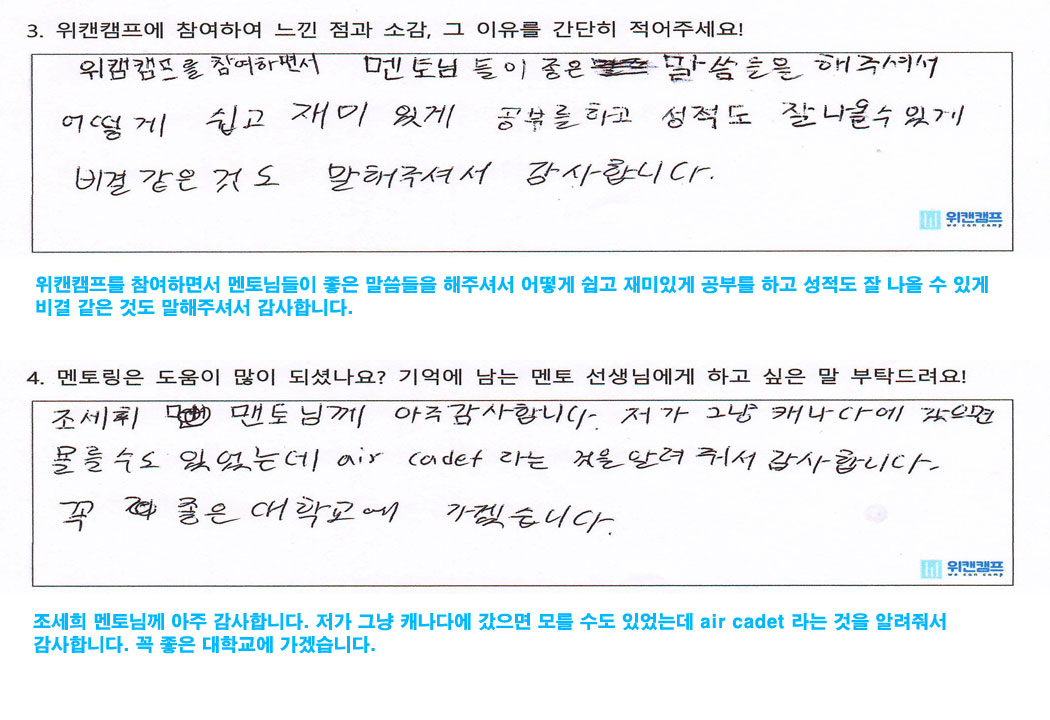 3. 위캔캠프에 참여하여 느낀 점과 소감, 그 이유를 간단히 적어주세요!
위캠캠프를 참여하면서 멘토님 들이 좋은 말씀들을 해주셔서
어떻게 쉽고 재미 있게 공부를하고 성적도 잘나올수 있게
비결 같은 것도 말해주셔서 감사합니다.
위캔캠프
we can camp
위캔캠프를 참여하면서 멘토님들이 좋은 말씀들을 해주셔서 어떻게 쉽고 재미있게 공부를 하고 성적도 잘 나올 수 있게
비결 같은 것도 말해주셔서 감사합니다.
4. 멘토링은 도움이 많이 되셨나요? 기억에 남는 멘토 선생님에게 하고 싶은 말 부탁드려요!
조세희 맨토님께 아주감사합니다. 저가 그냥 캐나다에 갔으면
몰를수도 있었는데 air cadet 라는 것을 알려 줘서 감사합니다.
꼭 좋은 대학교에 가겠습니다.
위캔캠프
we can camp
조세희 멘토님께 아주 감사합니다. 저가 그냥 캐나다에 갔으면 모를 수도 있었는데 air cadet 라는 것을 알려줘서
감사합니다. 꼭 좋은 대학교에 가겠습니다.